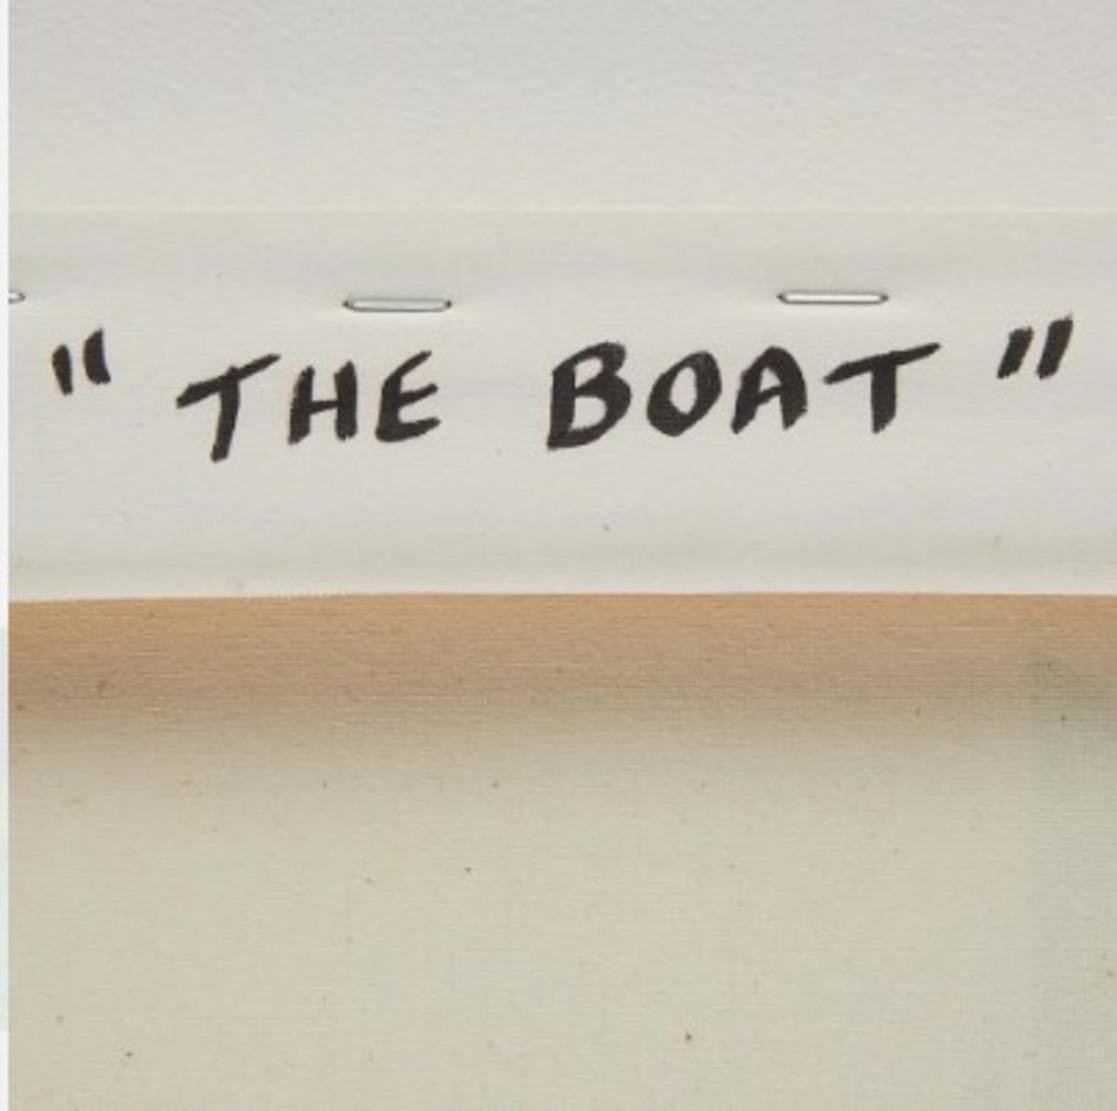 " THE BOAT "